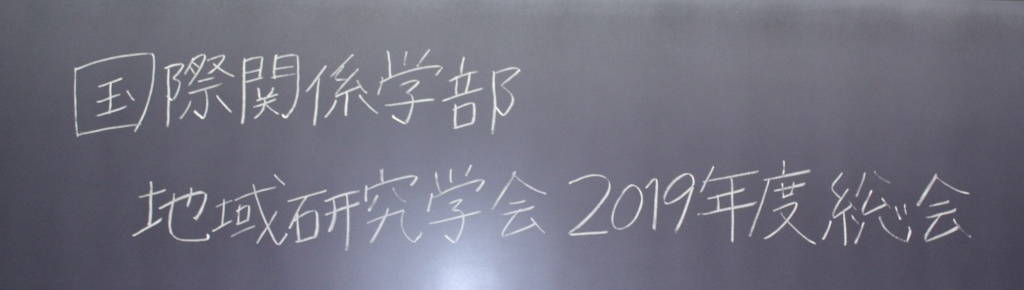 国際関係学部
地域研究学会 2019年度総会